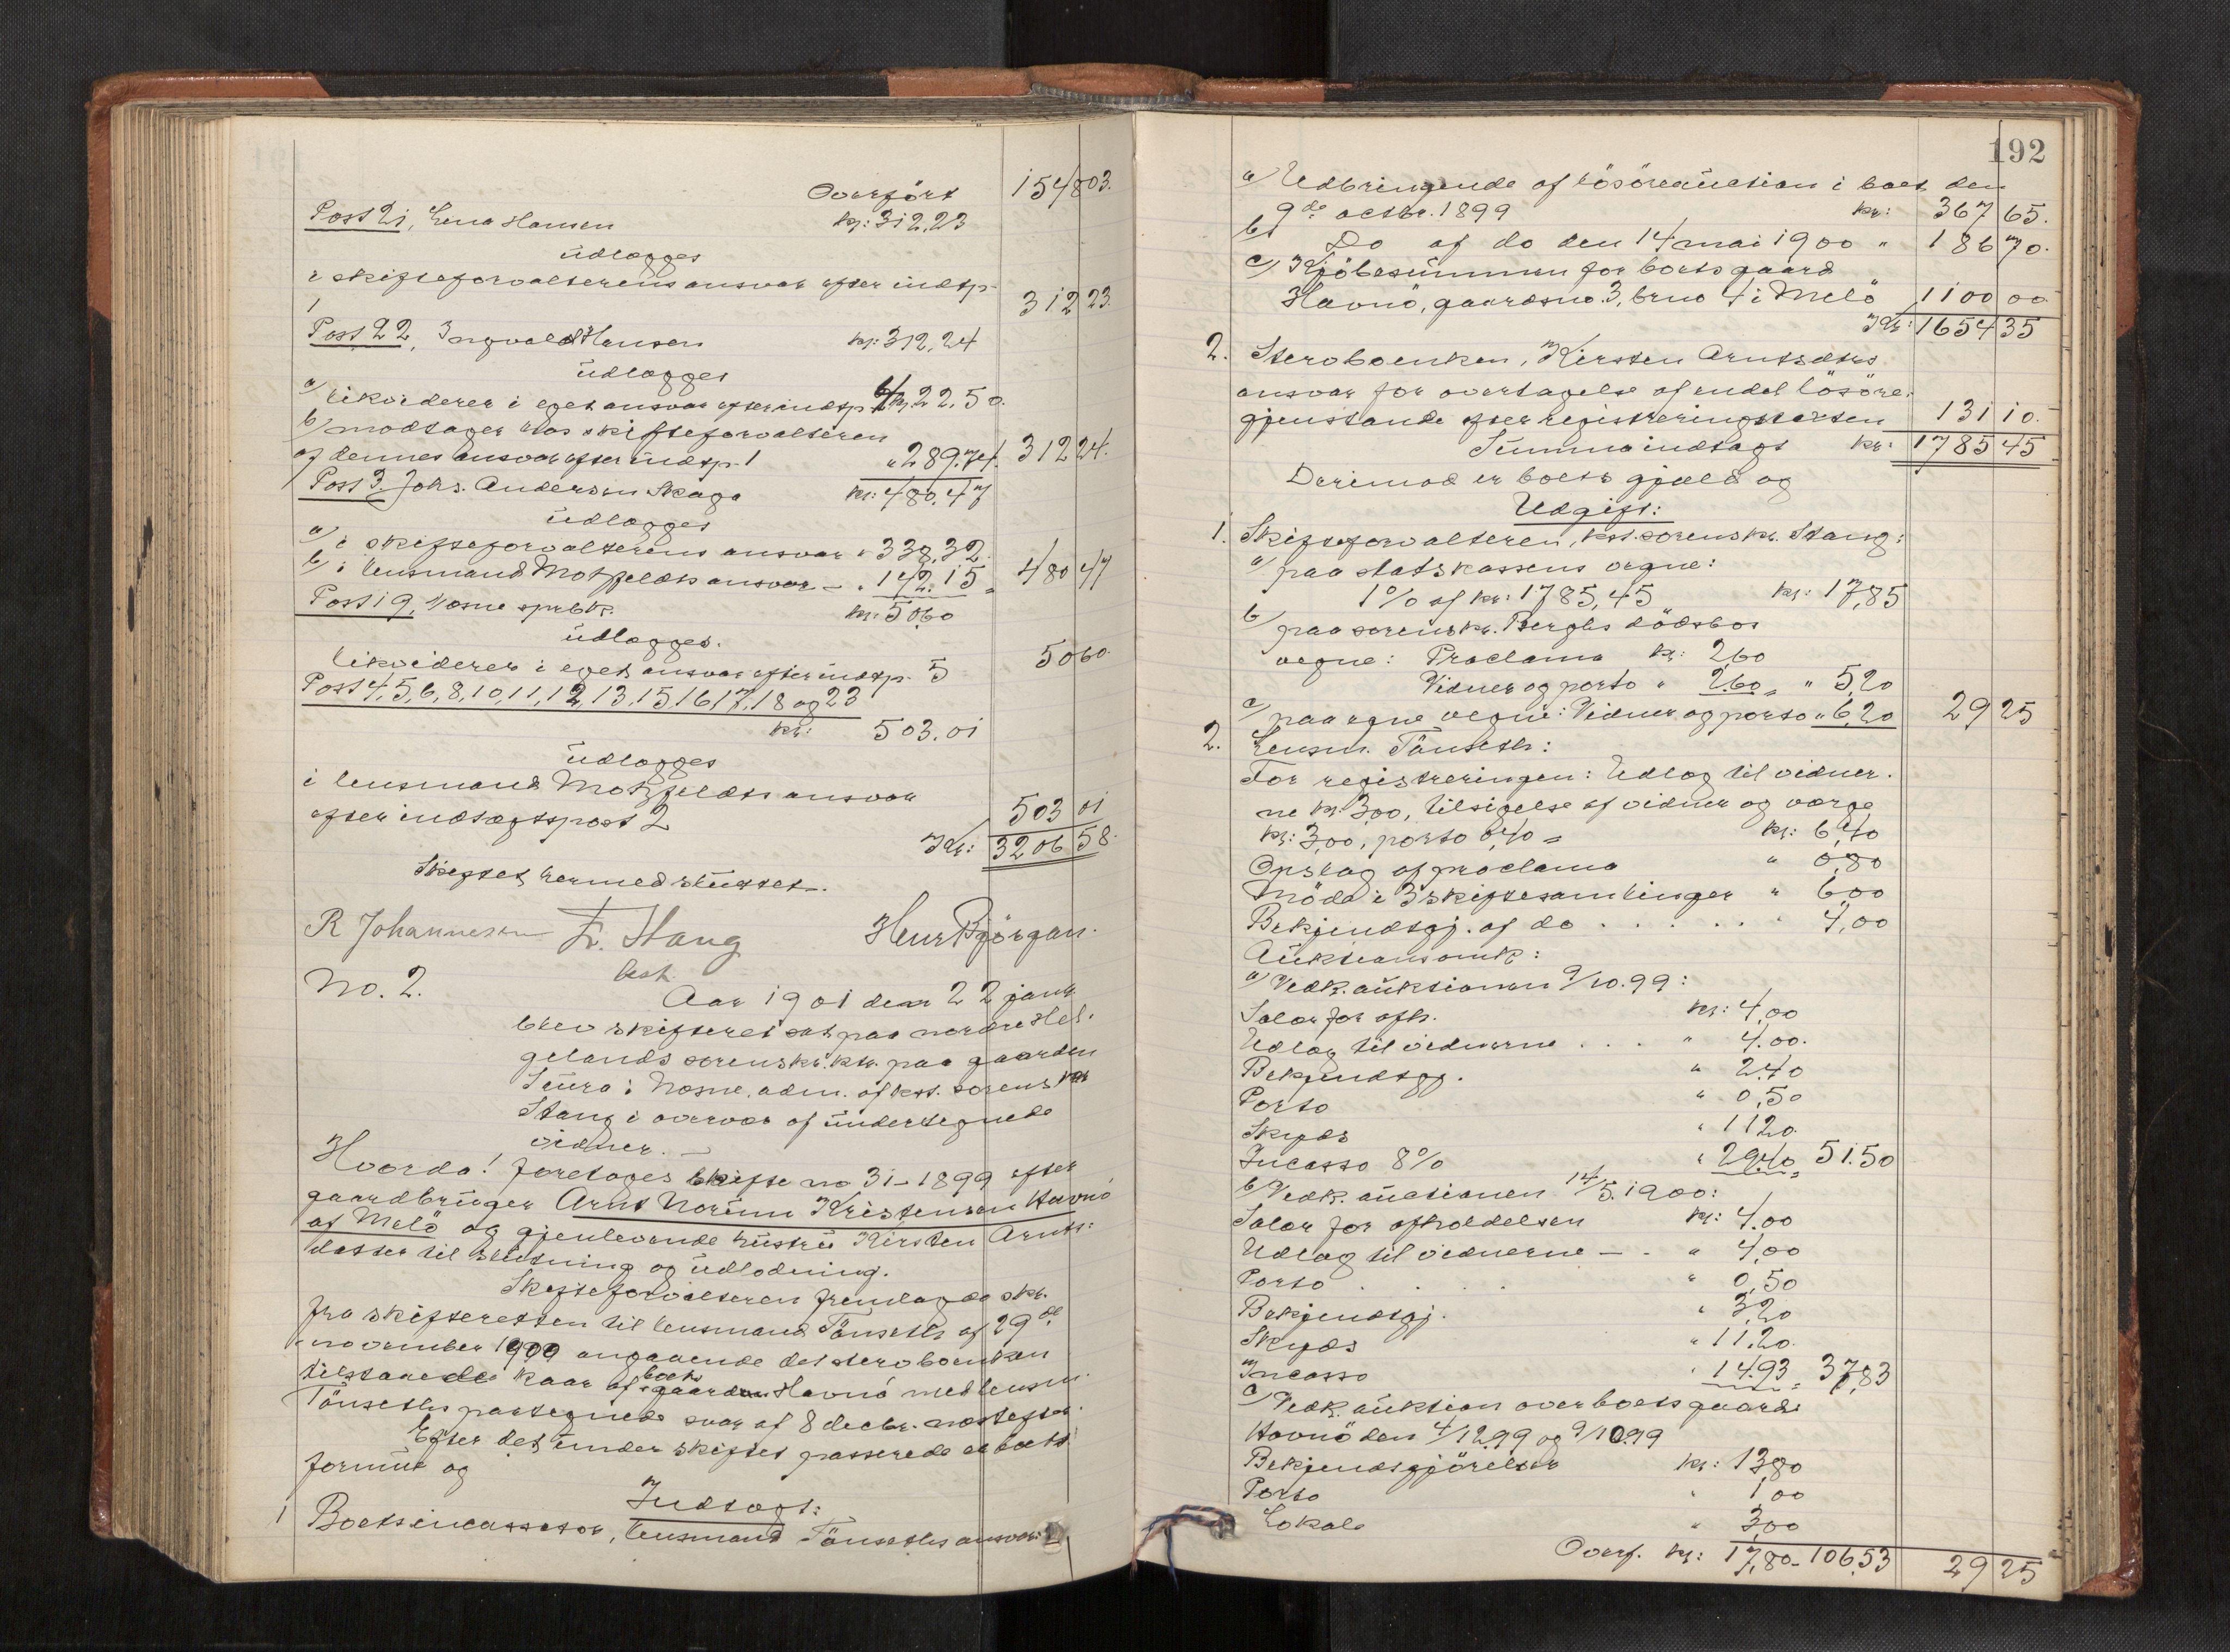 Overført 1548 03.
Post 21, Lena Hansen kr: 312,23
udlægges
i skifteforvalterens ansvar efter indtp.
1 312 23.
Post 22, Ingvald Hansen kr: 312,24
udlægges
a) likviderer i eget ansvar efter indtp. 6/ kr. 22,50.
b) modtager hos skifteforvalteren
af dennes ansvar efter indtp. 1 " 289.74. 312 24.
Post 3. Johs. Andersen Skaga kr: 480,47
udlægges
a) i skifteforvalterens ansvar " 338,32.
b) i lensmand Motzfeldts ansvar — " 142.15 = 480 47
Post 19, Næsne sprbk. kr: 50,60
udlægges.
likviderer i eget ansvar efter indtp. 5 50 60.
Post 4, 5, 6, 8, 10, 11, 12, 13, 15 16 17, 18 og 23
kr: 503.01
udlægges
i lensmand Motzfeldts ansvar
efter indtægtspost 2 503 01
Kr: 3206 58.
Skiftet hermed sluttet.
R Johannesen Fr. Stang Henr Bjørgan.
best.
No. 2.
Aar 1901 den 22 janr.
blev skifteret sat paa nordre Hel-
gelands sorenskr.ktr. paa gaarden
Zeüra i Næsne, adm. af kst. sorenskr
Stang i overvær af undertegnede
vidner. —
Hvorda! foretoges skifte no 31-1899 efter
gaardbruger Arnt Norum Kristensen Havnö
af Melö og gjenlevende hustru Kirsten Arnts-
datter til slutning og udlodning.
Skifteforvalteren fremlagde skr.
fra skifteretten til lensmand Tönseth af 29de
november 1900 angaaende det sterboenken
tilstaaede kaar af boets gaarden Havnö med lensm.
Tönseths paategnede svar af 8 decbr. næstefter.
Efter det under skiftet passerede er boets
formue og
Indtægt:
1 Boetsincassator, lensmand Tönseths ansvar:
192
a) Udbringende af lösöreauction i boet den
9de octbr. 1899 kr: 367 65.
b) Do af do den 14 mai 1900 " 186 70.
c) Kjöbesummen for boets gaard
Havnö, gaardsno. 3, brno 4 i Melö 1100 00
Kr: 1654 35
2. Sterboenken, Kirsten Arntsdtrs
ansvar for overtagelse af endel lösöre-
gjenstande efter registreringstaxten 131 10.
Summa indtægt kr: 1785 45
Derimod er boets gjæld og
Udgift:
1. Skifteforvalteren, kst. sorenskr. Stang:
a) paa statskassens vegne:
1% af kr: 1785,45 kr: 17,85
b) paa sorenskr. Berghs dödsbos
vegne: Proclama kr: 2,60
Vidner og porto " 2,60 = " 5,20
c) paa egne vegne: Vidner og porto " 6,20 29 25
2. Lensm. Tönseth:
For registreringen: Udlæg til vidner-
ne kr: 3,00, tilsigelse af vidner og værge
kr: 3,00, porto 0,40 = kr: 6,40
Opslag af proclama " 0,80
Möde i 3 skiftesamlinger " 6,00
Bekjendtgj. af do . . . . . " 4,00
Auktionsomk:
a) Vedk. auktionen 9/10. 99:
Salær for afh. kr: 4,00
Udlæg til vidnerne . . . " 4.00.
Bekjendtgj. " 2.40
Porto " 0,50
Skyds " 11 20.
Incasso 8% " 29.40 = 51.50
b) Vedk. auctionen 14/5. 1900:
Salær for afholdelsen kr: 4.00
Udlæg til vidnerne — . " 4,00
Porto . . . . " 0,50
Bekjendtgj. " 3,20
Skyds " 11,20.
Incasso " 14.93 = 37,83
c) Vedk. auktion over boets gaard
Havnö den 4/12.99 og 9/10.99
Bekjendtgjörelser kr: 13,80
Porto " 1,00
Lokale " 3,00
Overf. kr: 17,80 - 106,53 29 25